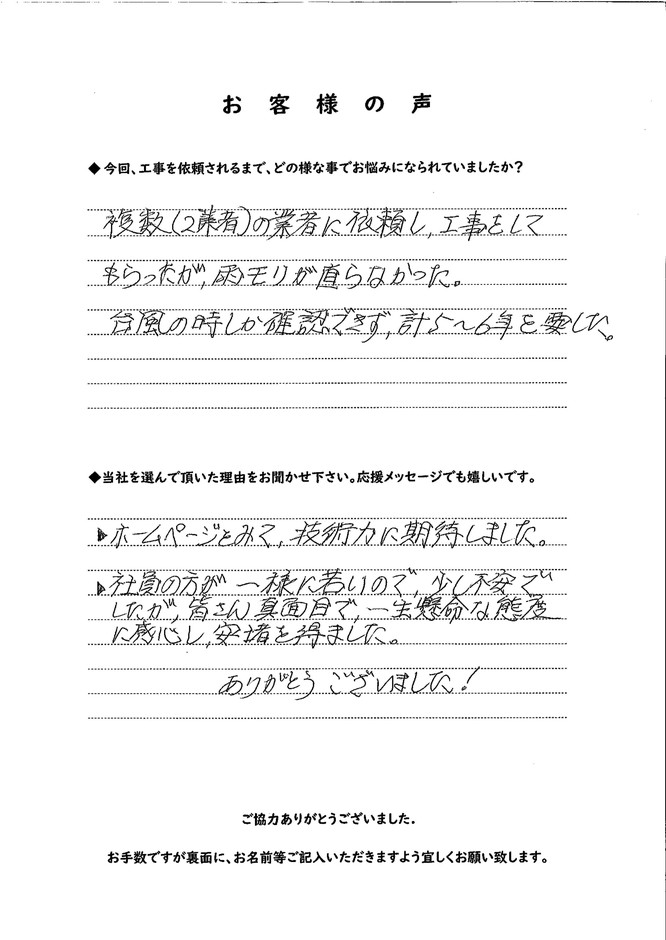 お客様の声
◆今回、工事を依頼されるまで、どの様な事でお悩みになられていましたか?
複数(2業者)の業者に依頼し、工事をして
もらったが、雨モリが直らなかった。
台風の時しか確認できず、計5~6年を要した。
◆当社を選んで頂いた理由をお聞かせ下さい。応援メッセージでも嬉しいです。
ホームページをみて、技術力に期待しました。
社員の方が一様に若いので、少し不安で
したが、皆さん真面目で、一生懸命な態度
に感心し、安堵を得ました。
ありがとうございました!
ご協力ありがとうございました.
お手数ですが裏面に、お名前等ご記入いただきますよう宜しくお願い致します。